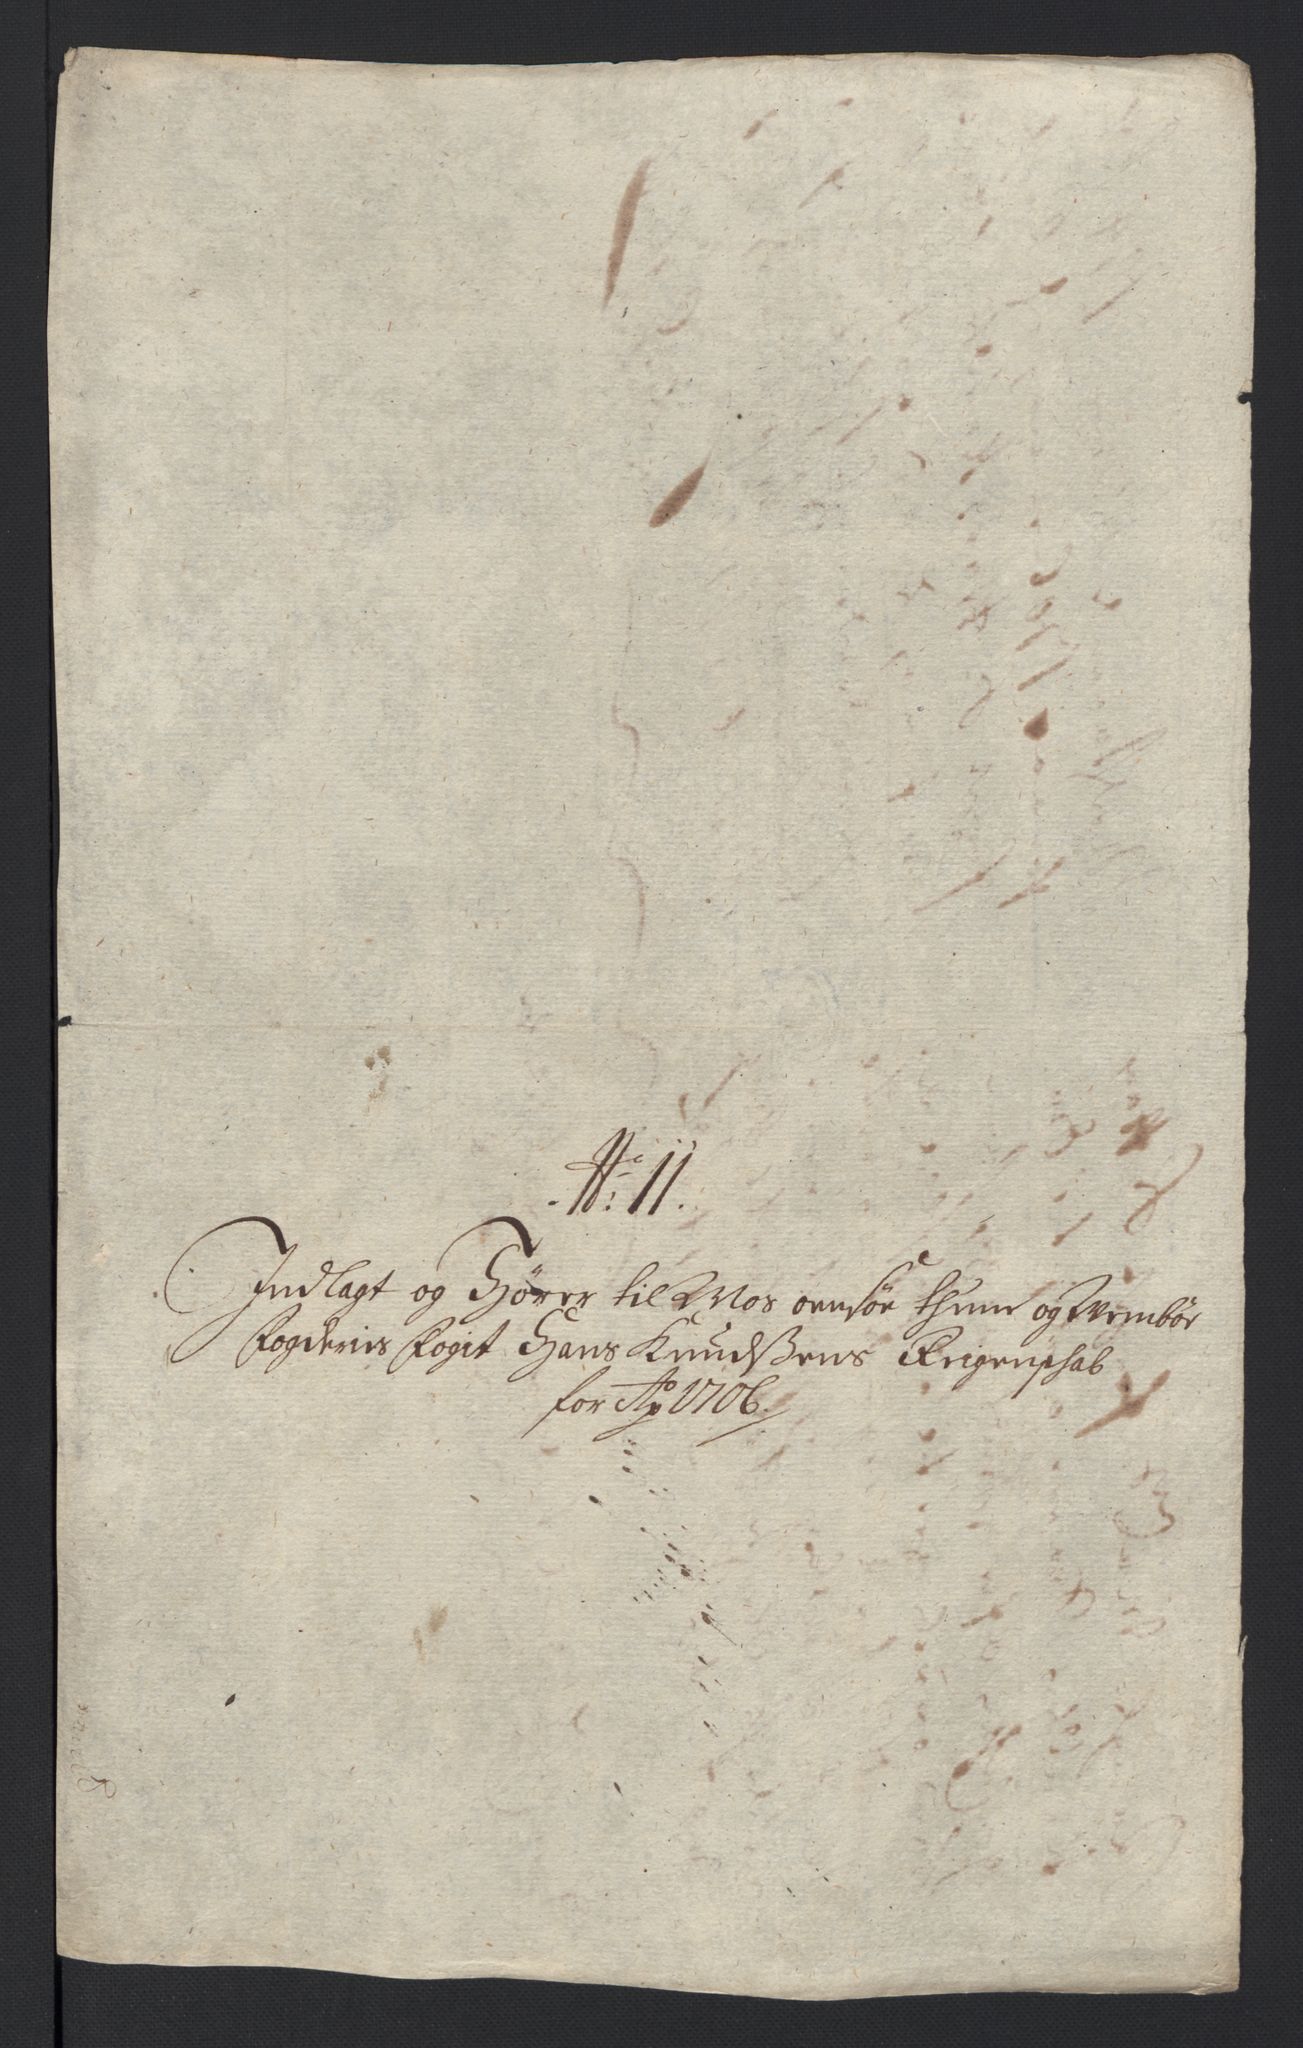 No: 11.
Indlagt og Hører til Mos onsöe thune og Vembör
Fogderies Fogit Hans Knudßens Reigenschab
for Ao 1706.